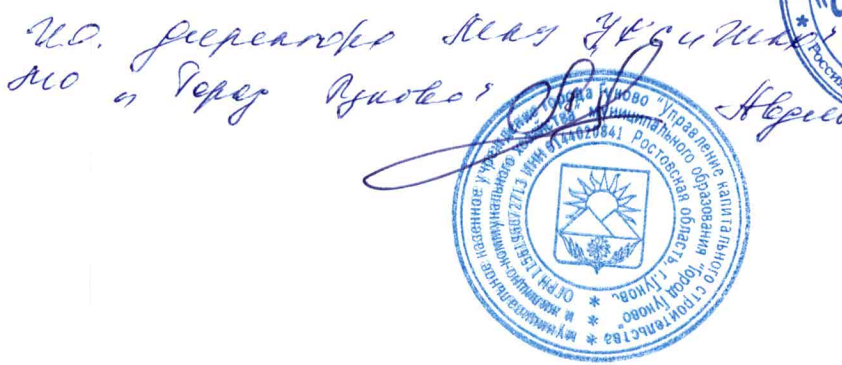 И.О. директора МКУ УКСиЖКХ
МО "Город Гуково"
муниципальное казенное учреждение города Гуково "Управление капитального строительства
и жилищно-коммунального хозяйства" муниципального образования "Город Гуково"
ОГРН 1156196072713 ИНН 6144020841 Ростовская область, г.Гуково